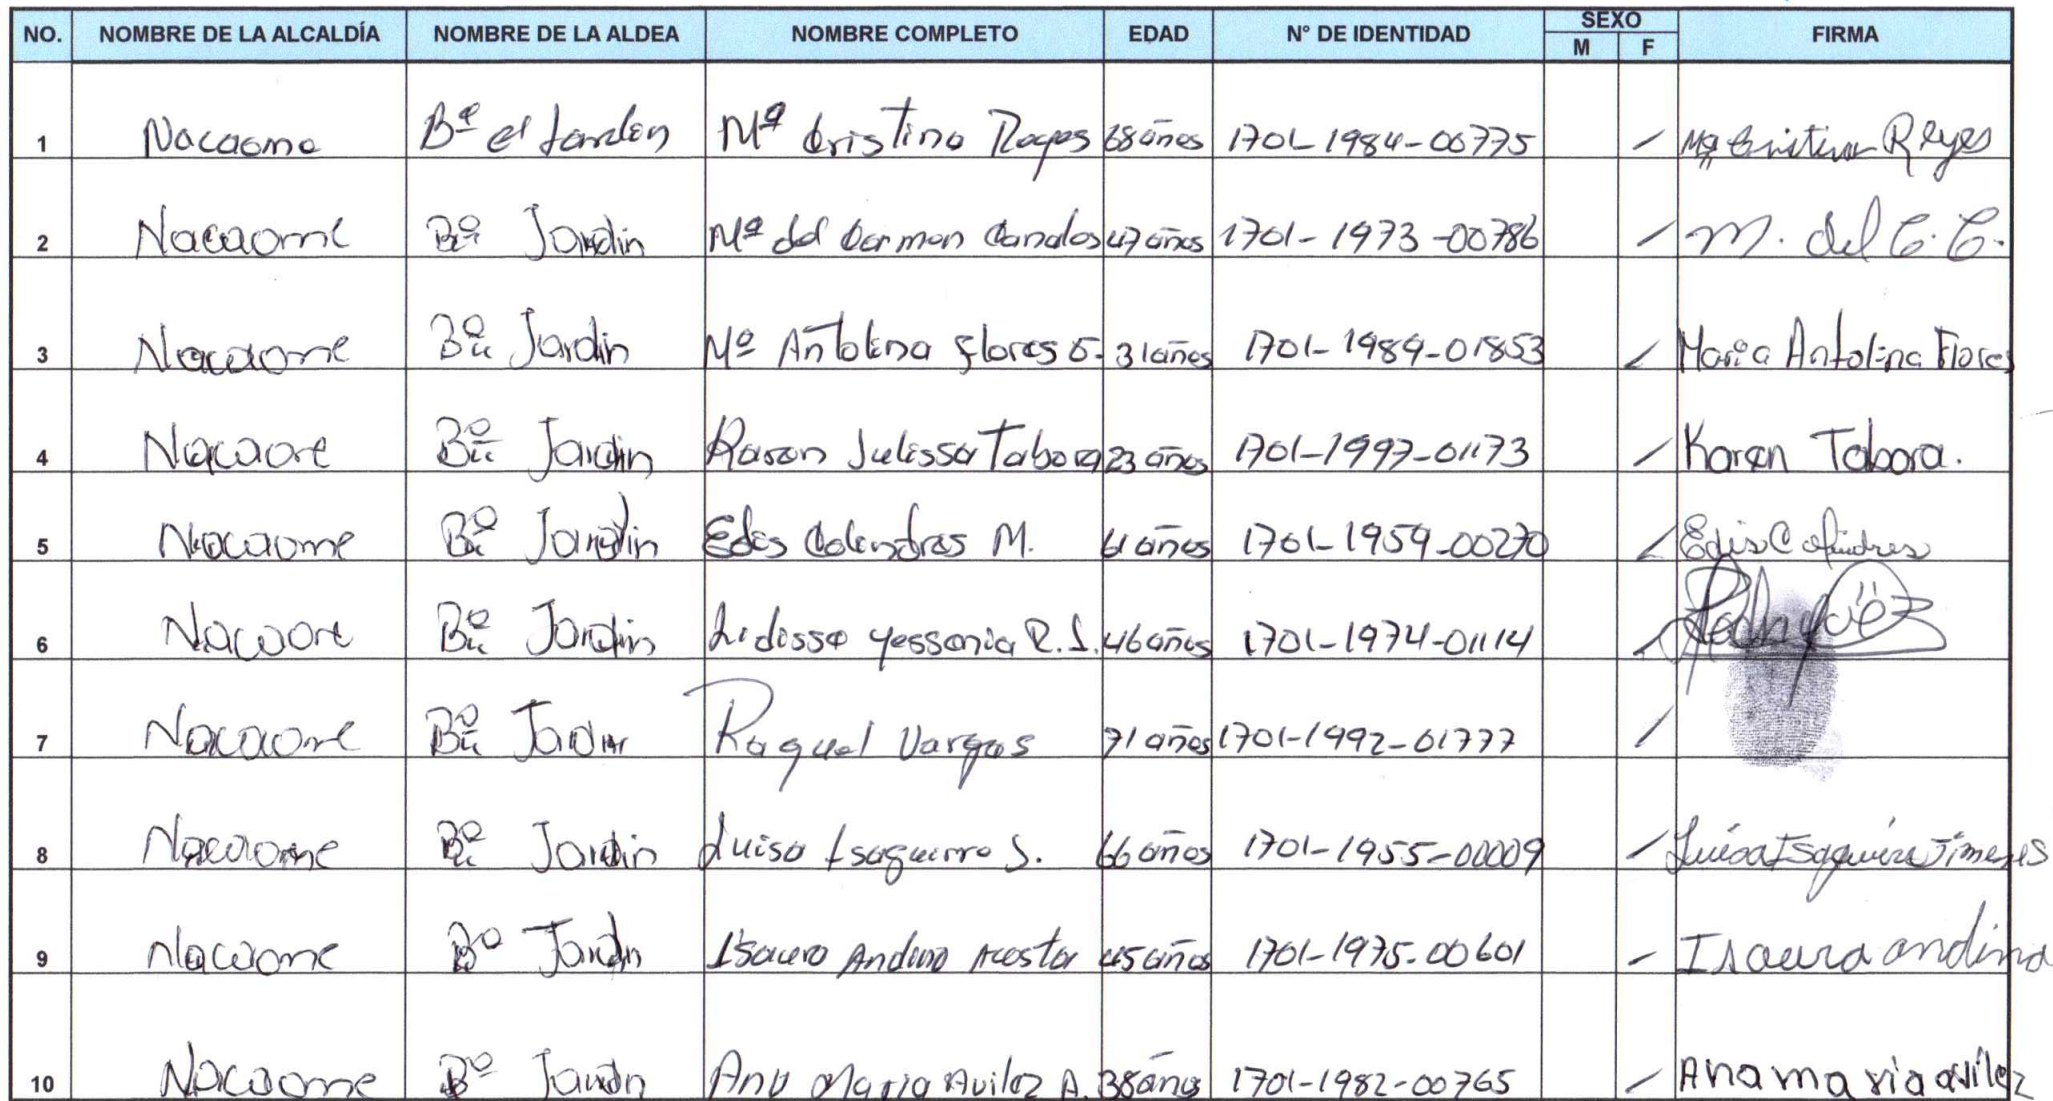 NO. NOMBRE DE LA ALCALDÍA NOMBRE DE LA ALDEA NOMBRE COMPLETO EDAD N° DE IDENTIDAD SEXO M F FIRMA
1 Nacaome Bº el Jardin Mª Cristina Reyes años 1701-1984-00775 / Mª Cristina Reyes
2 Nacaome Bº Jardin Mª del Carmen Canales 47 años 1701-1973-00786 / M. del C. C.
3 Nacaome Bº Jardin Mª Antolina Flores 31 años 1701-1989-01853 / Maria Antolina Flores
4 Nacaome Bº Jardin Karen Julissa Tabora 23 años 1701-1997-01173 / Karen Tabora.
5 Nacaome Bº Jardin Edis Colindres M. 61 años 1701-1959-00270 / Edis Colindres
6 Nacaome Bº Jardin Yessenia R. 46 años 1701-1974-01114 /
7 Nacaome Bº Jardin Raquel Vargas 71 años 1701-1992-01777 /
8 Nacaome Bº Jardin Luisa Isaguirre 66 años 1701-1955-00009 / Luisa Isaguirre Jimenes
9 Nacaome Bº Jardin Isaura Andino Acosta 45 años 1701-1975-00601 / Isaura andino
10 Nacaome Bº Jardin Ana Maria Avilez A. 38 años 1701-1982-00765 / Ana maria avilez